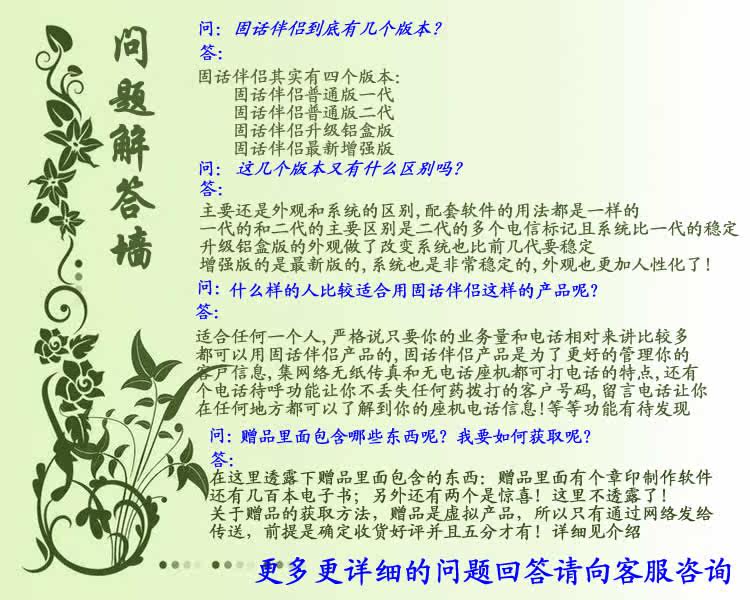 问题解答墙
问：固话伴侣到底有几个版本？
答：
固话伴侣其实有四个版本：
固话伴侣普通版一代
固话伴侣普通版二代
固话伴侣升级铝盒版
固话伴侣最新增强版
问：这几个版本又有什么区别吗？
答：
主要还是外观和系统的区别,配套软件的用法都是一样的
一代的和二代的主要区别是二代的多个电信标记且系统比一代的稳定
升级铝盒版的外观做了改变系统也比前几代要稳定
增强版的是最新版的,系统也是非常稳定的,外观也更加人性化了!
问：什么样的人比较适合用固话伴侣这样的产品呢？
答：
适合任何一个人,严格说只要你的业务量和电话相对来讲比较多
都可以用固话伴侣产品的,固话伴侣产品是为了更好的管理你的
客户信息,集网络无纸传真和无电话座机都可打电话的特点,还有
个电话待呼功能让你不丢失任何药拨打的客户号码,留言电话让你
在任何地方都可以了解到你的座机电话信息!等等功能有待发现
问：赠品里面包含哪些东西呢？我要如何获取呢？
答：
在这里透露下赠品里面包含的东西：赠品里面有个章印制作软件
还有几百本电子书；另外还有两个是惊喜！这里不透露了！
关于赠品的获取方法，赠品是虚拟产品，所以只有通过网络发给
传送，前提是确定收货好评并且五分才有！详细见介绍
更多更详细的问题回答请向客服咨询